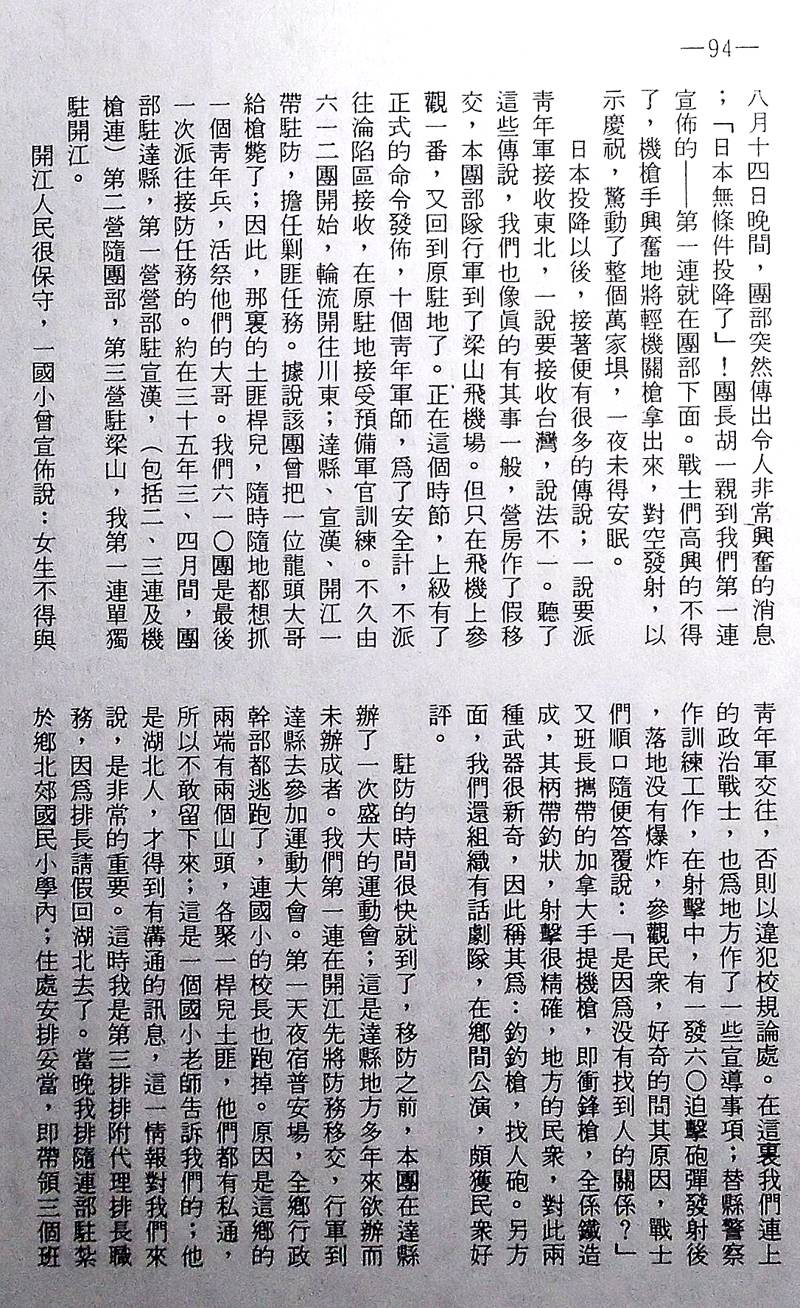 —94—
八月十四日晚間，團部突然傳出令人非常興奮的消息
；「日本無條件投降了」！團長胡一親到我們第一連
宣佈的——第一連就在團部下面。戰士們高興的不得
了，機槍手興奮地將輕機關槍拿出來，對空發射，以
示慶祝，驚動了整個萬家埧，一夜未得安眠。
日本投降以後，接著便有很多的傳說；一說要派
靑年軍接收東北，一說要接收台灣，說法不一。聽了
這些傳說，我們也像眞的有其事一般，營房作了假移
交，本團部隊行軍到了梁山飛機場。但只在飛機上參
觀一番，又回到原駐地了。正在這個時節，上級有了
正式的命令發佈，十個靑年軍師，爲了安全計，不派
往淪陷區接收，在原駐地接受預備軍官訓練。不久由
六一二團開始，輪流開往川東；達縣、宣漢、開江一
帶駐防，擔任剿匪任務。據說該團曾把一位龍頭大哥
給槍斃了；因此，那裏的土匪桿兒，隨時隨地都想抓
一個靑年兵，活祭他們的大哥。我們六一〇團是最後
一次派往接防任務的。約在三十五年三、四月間，團
部駐達縣，第一營營部駐宣漢，（包括二、三連及機
槍連）第二營隨團部，第三營駐梁山，我第一連單獨
駐開江。
開江人民很保守，一國小曾宣佈說：女生不得與
靑年軍交往，否則以違犯校規論處。在這裏我們連上
的政治戰士，也爲地方作了一些宣導事項；替縣警察
作訓練工作，在射擊中，有一發六〇迫擊砲彈發射後
，落地没有爆炸，參觀民衆，好奇的問其原因，戰士
們順口隨便答覆說：「是因爲没有找到人的關係？」
又班長攜帶的加拿大手提機槍，即衝鋒槍，全係鐵造
成，其柄帶釣狀，射擊很精確，地方的民衆，對此兩
種武器很新奇，因此稱其爲：釣釣槍，找人砲。另方
面，我們還組織有話劇隊，在鄉間公演，頗獲民衆好
評。
駐防的時間很快就到了，移防之前，本團在達縣
辦了一次盛大的運動會；這是達縣地方多年來欲辦而
未辦成者。我們第一連在開江先將防務移交，行軍到
達縣去參加運動大會。第一天夜宿普安場，全鄉行政
幹部都逃跑了，連國小的校長也跑掉。原因是這鄉的
兩端有兩個山頭，各聚一桿兒土匪，他們都有私通，
所以不敢留下來；這是一個國小老師告訴我們的；他
是湖北人，才得到有溝通的訊息，這一情報對我們來
說，是非常的重要。這時我是第三排排附代理排長職
務，因爲排長請假回湖北去了。當晚我排隨連部駐紮
於鄉北郊國民小學內；住處安排妥當，即帶領三個班